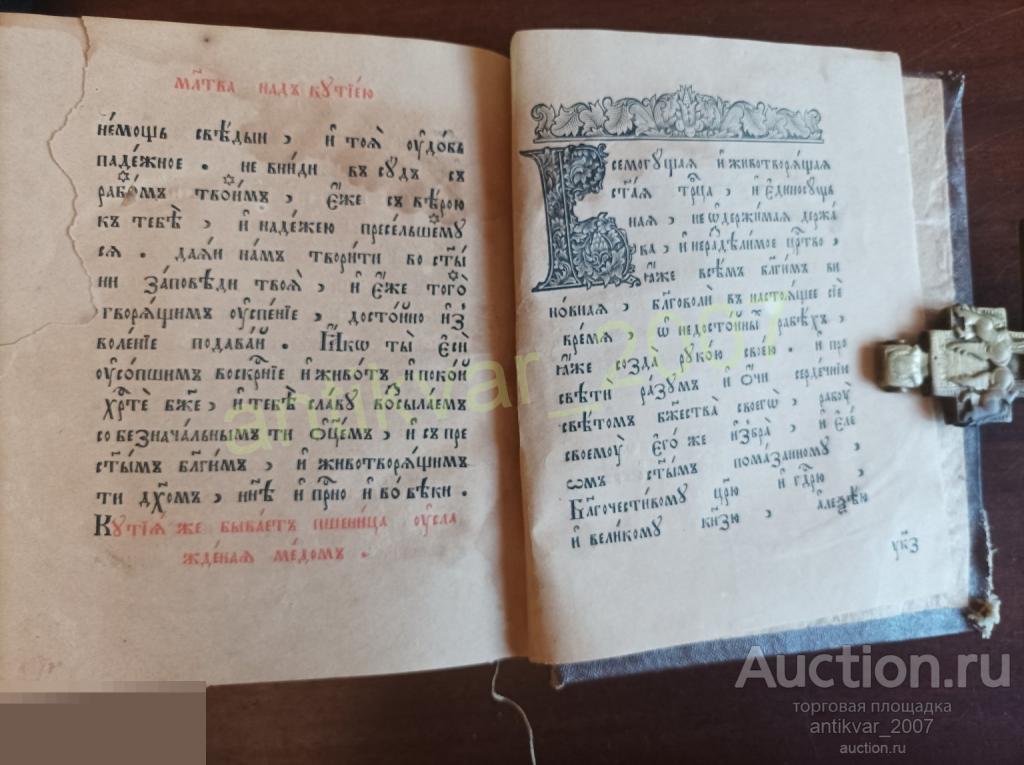 мл҃тва над̾ кꙋтїею
не́мощь свѣ́дыи , и҆ тоѧ̀ ᲂу҆до́бь
паде́жное . не вни́ди въ сꙋ́дъ съ
рабо́мъ твои́мъ , є҆́же съ вѣ́рою
къ тебѣ̀ , и҆ наде́жею пресе́льшемꙋ
сѧ . да́ѧи на́мъ твори́ти во ст҃ы́
ни за́повѣди твоѧ̀ , и҆ є҆́же того̀
творѧ́щимъ ᲂу҆спе́нїе , досто́йно и҆з
воле́нїе пода́ваѧ . Ꙗ҆́кѡ ты̀ є҆сѝ
ᲂу҆со́пшимъ воскр҃нїе и҆ живо́тъ и҆ поко́й
хр҃тѐ бж҃е , и҆ тебѣ̀ сла́вꙋ возсыла́емъ
со безнача́льнымъ ти ѻ҆ц҃е́мъ , и҆ съ пре
ст҃ы́мъ бл҃ги́мъ , и҆ животворѧ́щимъ
ти дх҃омъ , нн҃ѣ и҆ пр҃но и҆ во вѣ́ки .
Кꙋтїѧ̀ же быва́етъ пшени́ца ᲂу҆сла
жде́наѧ ме́домъ .
Всемогꙋ́щаѧ и҆ животворѧ́щаѧ
ст҃а́ѧ тр҃ца , и҆ є҆диносꙋ́щ
наѧ , неѡ҆держи́маѧ держа́
ва , и҆ нераздѣли́мое цр҃тво ,
ꙗ҆́же всѣ́мъ бл҃ги́мъ ви
но́внаѧ , бл҃говолѝ въ настоѧ́щее сїѐ
вре́мѧ , ѡ҆ недосто́йныхъ рабѣ́хъ ,
ꙗ҆́же созда̀ рꙋко́ю свое́ю . и҆ про
свѣтѝ ра́зꙋмъ и҆ ѻ҆́чи серде́чнїи
свѣ́томъ бж҃ества̀ своегѡ̀ , рабꙋ̀
своемꙋ̀ є҆го́же и҆збра̀ , и҆ є҆ле́
ѡмъ ст҃ы́мъ пома́занномꙋ ,
Бл҃гочести́вомꙋ цр҃ю̀ и҆ гд҃рю ,
и҆ вели́комꙋ кн҃зю , а҆леѯѣ́ю
ук҃з
antikvar_2007
Auction.ru
торговая площадка
antikvar_2007
auction.ru